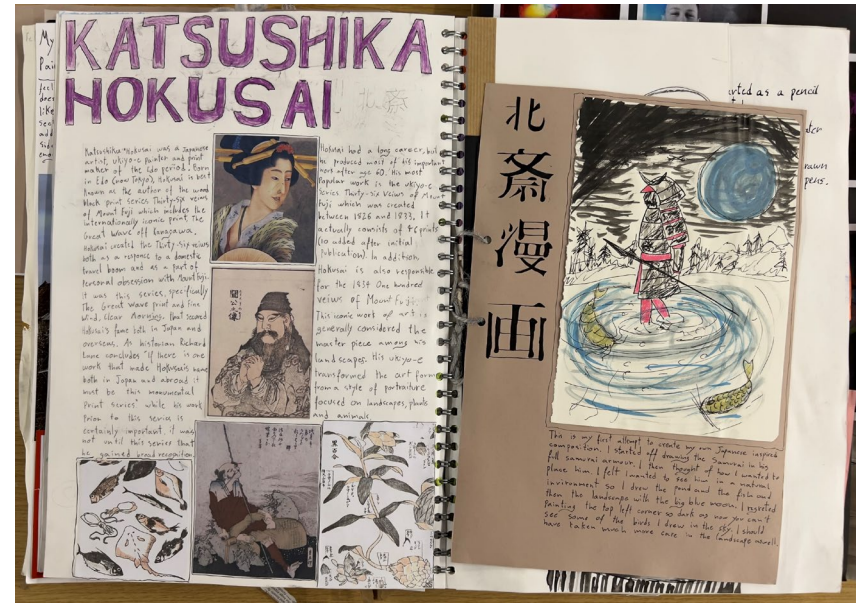 KATSUSHIKA
HOKUSAI
Katsushika Hokusai was a Japanese
artist, ukiyo-e painter and print
maker of the Edo period. Born
in Edo (now Tokyo), Hokusai is best
known as the author of the wood
block print series Thirty-six veiws
of Mount Fuji which includes the
internationally iconic print The
Great Wave off Kanagawa.
Hokusai created the Thirty-six veiws
both as a response to a domestic
travel boom and as a part of
Personal obsession with Mount Fuji.
It was this series, specifically
The Great wave print and Fine
Wind, Clear Morning, that secured
Hokusai's fame both in Japan and
overseas. As historian Richard
Lane concludes "if there is one
work that made Hokusai's name
both in Japan and abroad it
must be this monumental
Print series" while his work
Prior to this series is
certainly important, it was
not until this series that
he gained broad recognition.
Hokusai had a long career, but
he produced most of his important
work after age 60. His most
Popular work is the ukiyo-e
series Thirty-six Veiws of Mount
Fuji which was created
between 1826 and 1833. It
actually consists of 46 prints
(10 added after initial
Publication). In addition
Hokusai is also responsible
for the 1834 One hundred
veiws of Mount Fuji.
This iconic work of art is
generally considered the
master piece among his
landscapes. His ukiyo-e
transformed the art form
from a style of portraiture
focused on landscapes, plants
and animals.
北斎
關公之像
黒百合
北
斎
漫
画
This is my first attempt to create my own Japanese inspired
composition. I started off drawing the Samurai in his
full samurai armour. I then thought of how I wanted to
place him. I felt I wanted to see him in a natural
invironment so I drew the pond and the fish and
then the landscape with the big blue moon. I regreted
Painting the top left corner so dark as now you can't
see some of the birds I drew in the sky. I should
have taken much more care in the landscape as well.
My
Pai
feel
like
arted as a pencil
rawn
pens.